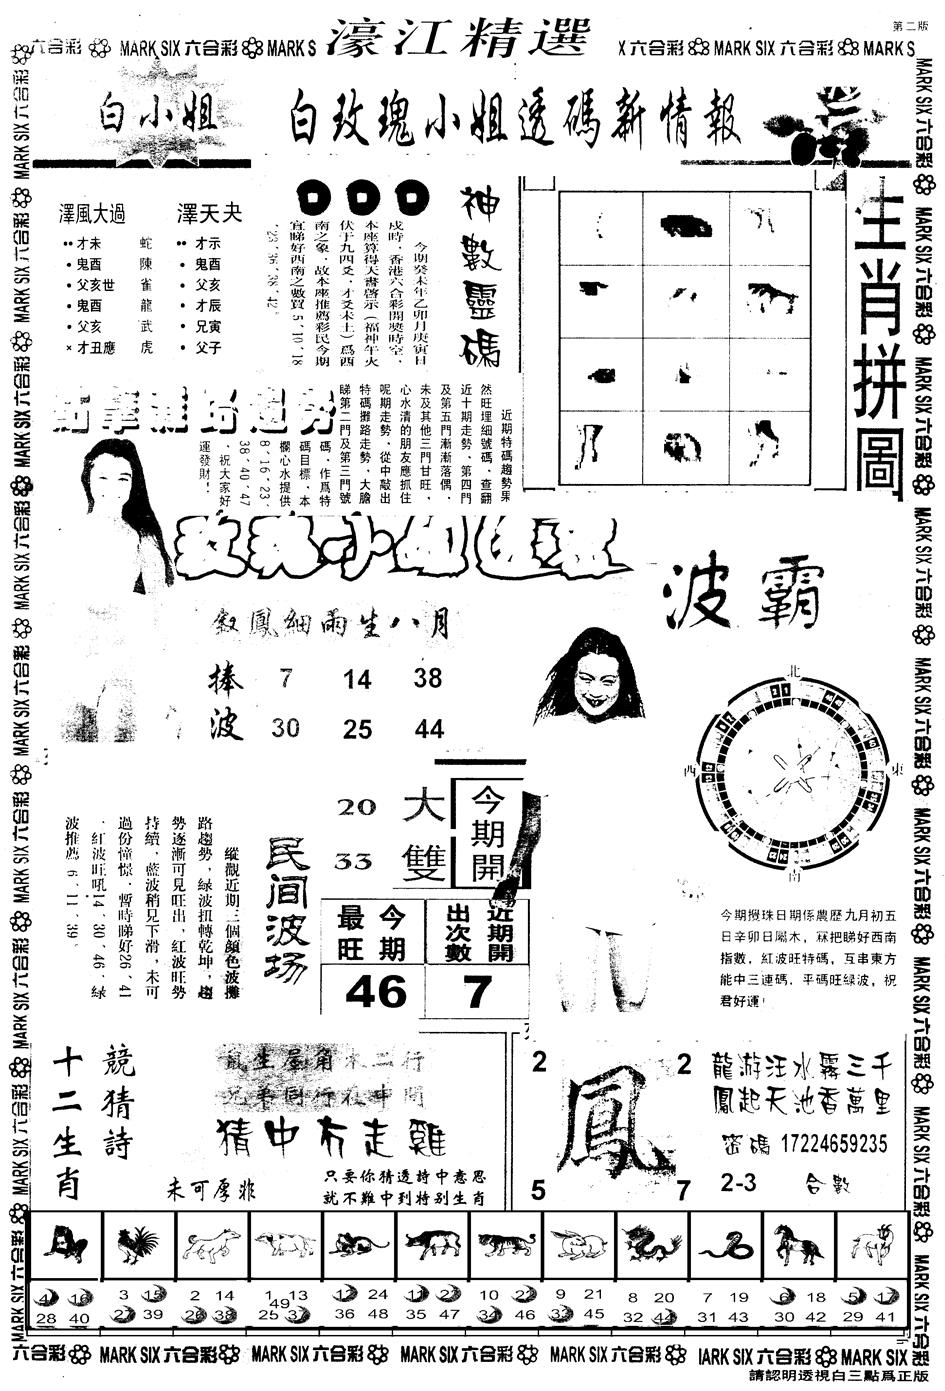 第二版
濠江精選
六合彩 MARK SIX 六合彩 MARK S
X 六合彩 MARK SIX 六合彩 MARK S
白小姐
白玫瑰小姐透碼新情報
澤風大過
才未 蛇
鬼酉 陳
父亥世 雀
鬼酉 龍
父亥 武
才丑應 虎
澤天夬
才示
鬼酉
父亥
才辰
兄寅
父子
神數靈碼
今期癸未年乙卯月庚寅日
戌時．香港六合彩開獎時空．
本座算得天書啓示（福神午火
伏于九四爻．才爻未土）爲酉
南之象．故本座推薦彩民今期
宜睇好西南之數買 5、10、18
、23、36、38、42。
生肖拼圖
近期特碼趨勢果
然旺埋細號碼、查翻
近十期走勢、第四門
及第五門漸漸落偶、
未及其他三門甘旺，
心水清的朋友應抓住
呢期走勢、從中敲出
特碼攤路走勢、大膽
睇第二門及第三門號
碼、作爲特
碼目標．本
欄心水提供
8、16、23、
38、40、47
、祝大家好
運發財！
波霸
敍鳳細雨生八月
捧波
7 14 38
30 25 44
北
西
東
南
20 大
33 雙
今期開
民间波场
縱觀近期三個顔色波攤
路趨勢，緑波扭轉乾坤，趨
勢逐漸可見旺出，紅波旺勢
持續，藍波稍見下滑，未可
過份憧憬．暫時睇好26、41
．紅波旺吼14、30、46，緑
波推薦 6、11、39。
今期最旺
46
近期開出次數
7
今期攪珠日期係農歷九月初五
日辛卯日屬木，冧把睇好西南
指數，紅波旺特碼，互串東方
能中三連碼．平碼旺緑波，祝
君好運！
十二生肖
競猜詩
鼠生屋角未二行
兄弟同行在中間
猜中冇走雞
未可厚非
只要你猜透詩中意思
就不難中到特别生肖
2 2
鳳
5 7
龍游汪水霧三千
鳳起天池香萬里
密碼 17224659235
2-3 合數
4 16 3 15 2 14 1 13 12 24 11 23 10 22 9 21 8 20 7 19 6 18 5 17
49
28 40 27 39 26 38 25 37 36 48 35 47 34 46 33 45 32 44 31 43 30 42 29 41
六合彩 MARK SIX 六合彩 MARK SIX 六合彩 MARK SIX 六合彩 MARK SIX 六合彩 IARK SIX 六合彩 MARK SIX
請認明透視白三點爲正版